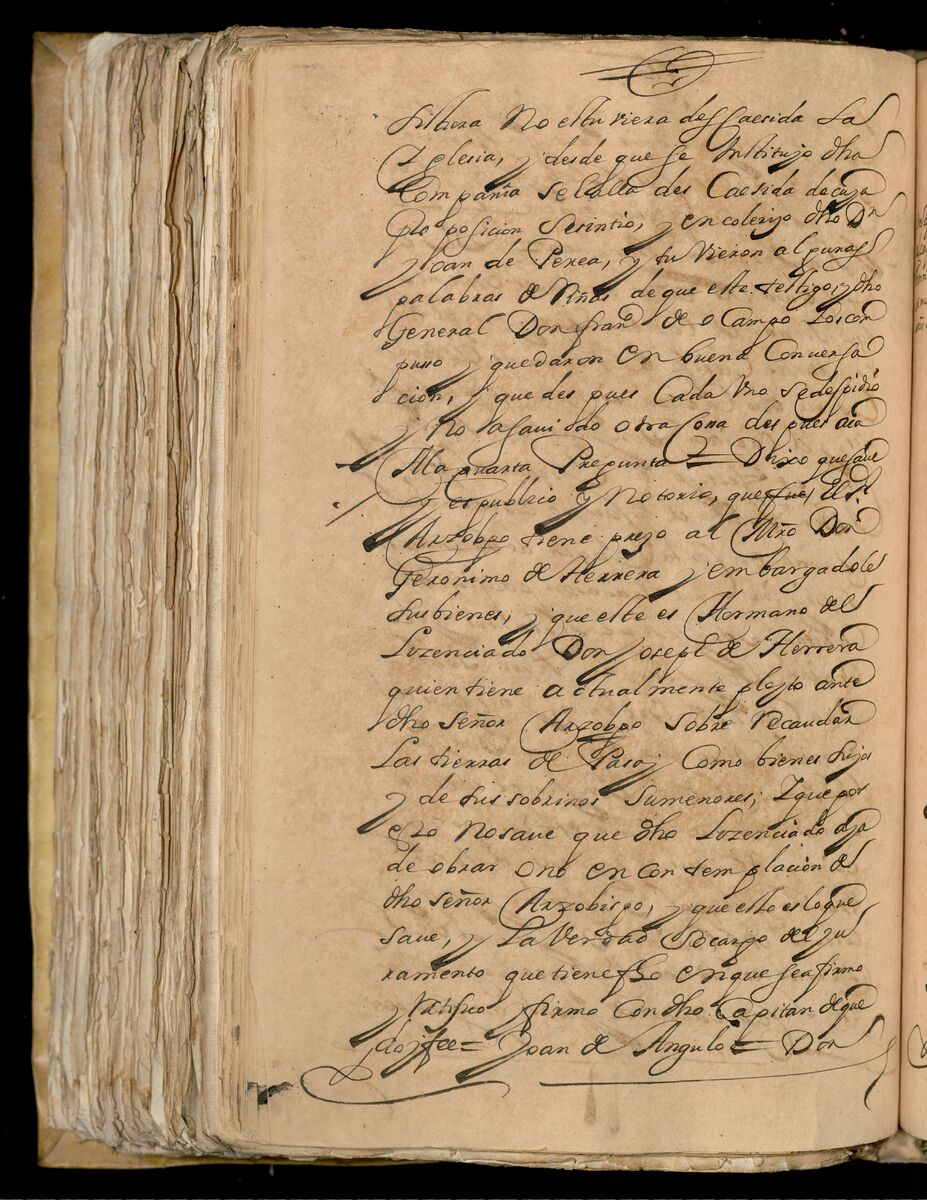 hubiera no estuviera descaesida la
Yglesia, y desde que se instituyo dha
Compañia se alla des Caesida de cuya
proposicion se sintio, y encolerizo dho Dn
Joan de Perea, y tuvieron algunas
palabras de Riñas de que este testigo, y dho
General Don franco de o Campo los con
puso y quedaron en buena Conversa
cion, y que des pues Cada Vno se despidio
y No a savido otra Cosa des pues aca
A la quarta Pregunta = Dixo que save
y es publico y Notorio, que fue, El Sr
Arzobpo tiene preso al Mro Don
Geronimo de Herrera y embargadoles
sus bienes, y que este es Hermano del
Lizenciado Don Joseph de Herrera
quien tiene actualmente pleyto ante
dho señor Arzobpo sobre Recaudar
Las tierras de Pasoj Como bienes suyos
y de sus sobrinos sumenores; Y que por
esto No save que dho Lizenciado aya
de obrar ono en con templacion del
dho señor Arzobispo, y que esto es lo que
save, y La Verdad so cargo del ju
ramento que tiene fho en que se afirmo
y Ratifico y firmo Con dho Capitan de que
doy fee = Joan de Angulo = Don